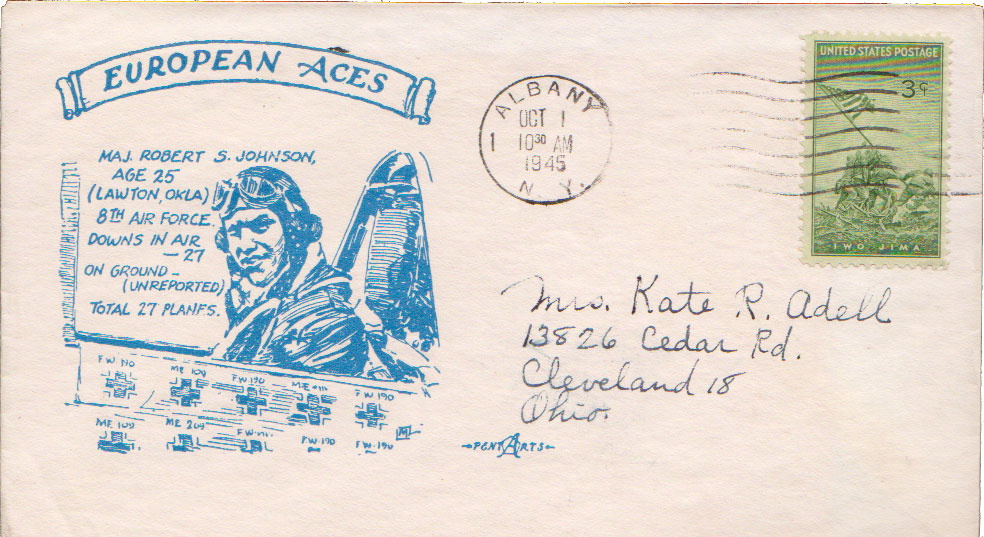 EUROPEAN ACES
MAJ. ROBERT S. JOHNSON,
AGE 25
(LAWTON, OKLA)
8TH AIR FORCE.
DOWNS IN AIR
— 27
ON GROUND —
(UNREPORTED)
TOTAL 27 PLANES.
FW 190
ME 109
FW 190
ME
FW 190
ME 109
ME 209
FW
FW-190
FW-190
PENT ARTS
ALBANY
OCT 1
1 10 30 AM
1945
N. Y.
UNITED STATES POSTAGE
3¢
IWO JIMA
Mrs. Kate R. Adell
13826 Cedar Rd.
Cleveland 18
Ohio.